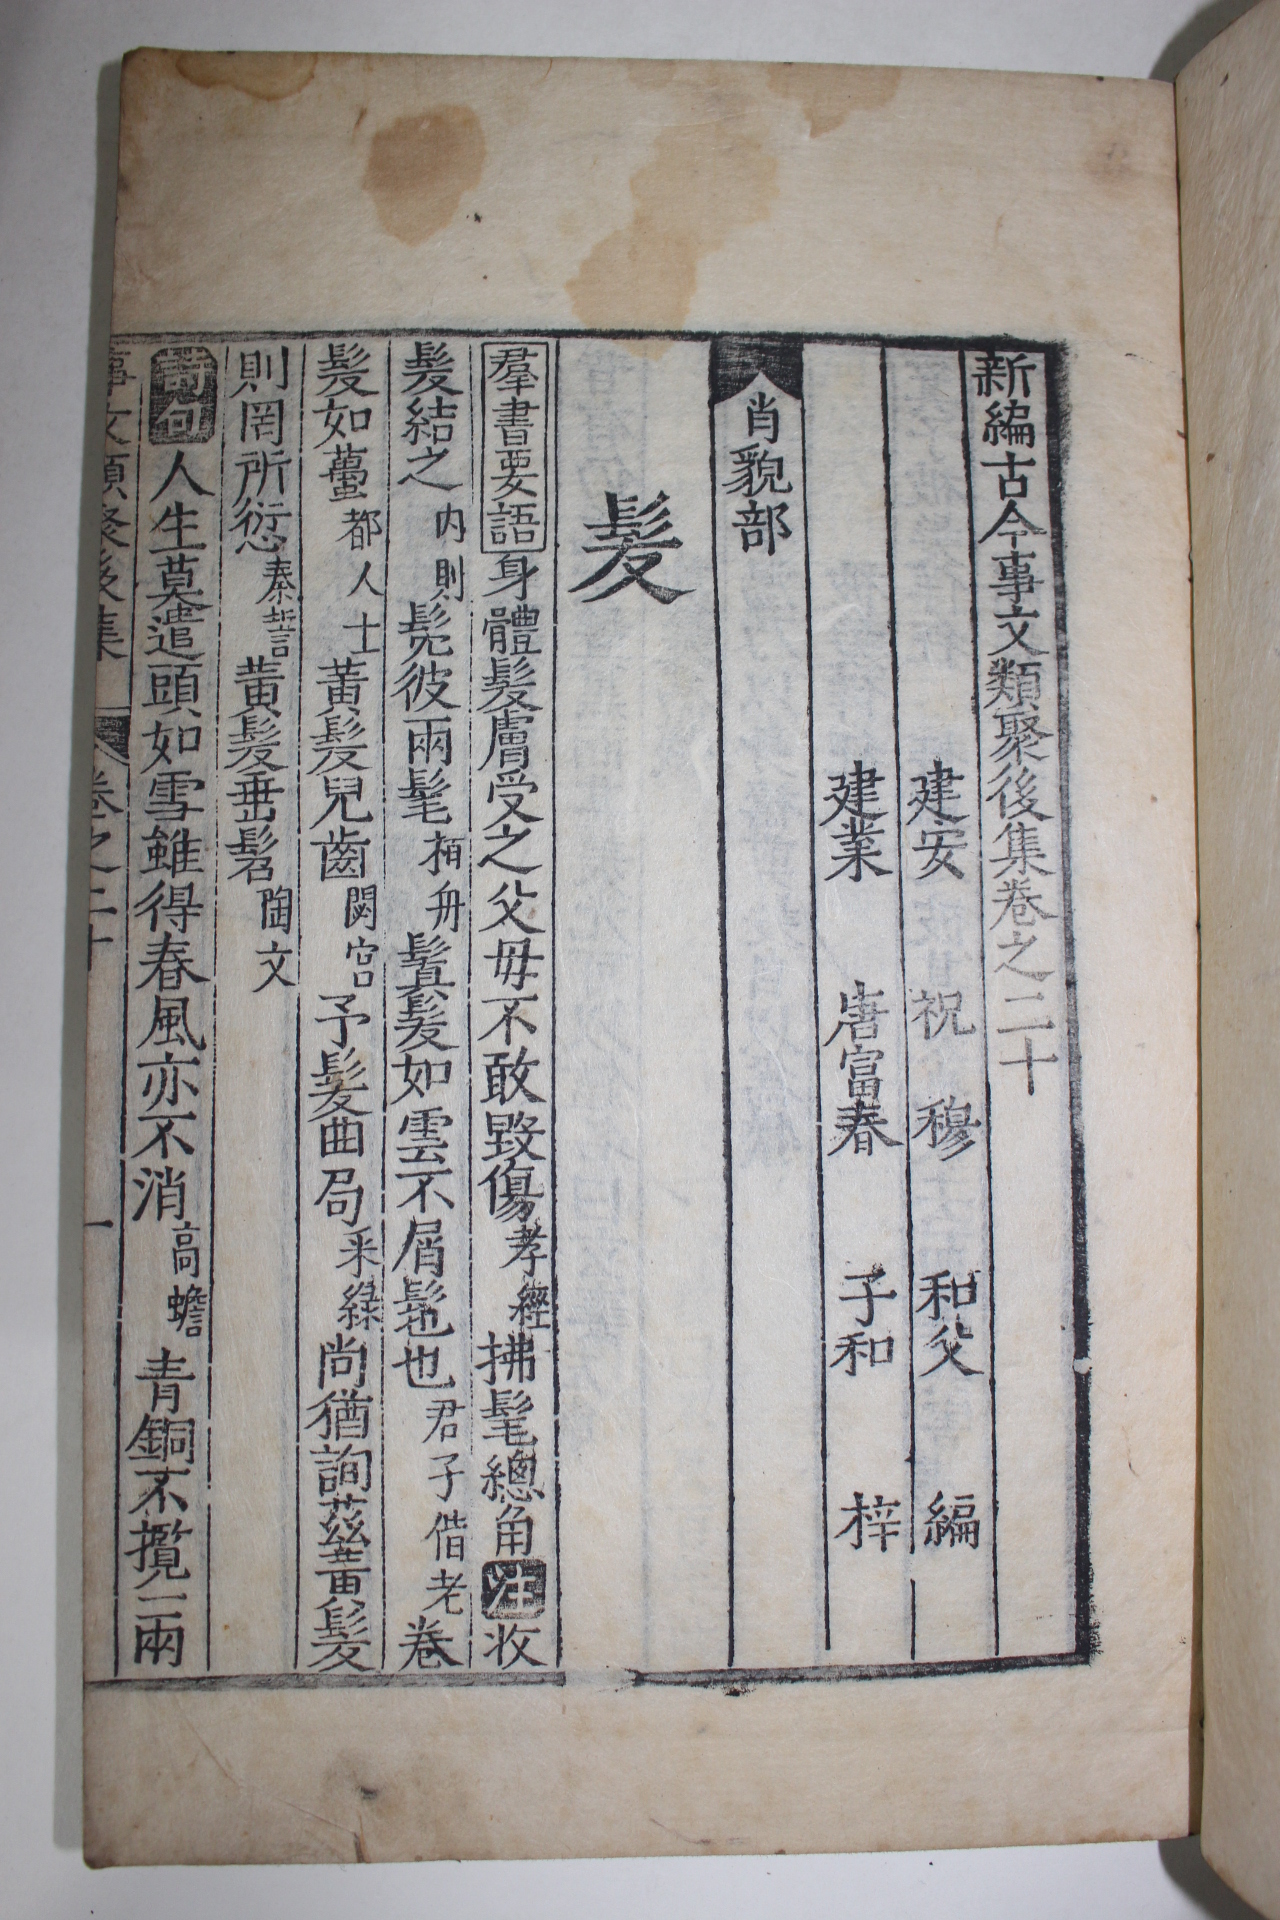 新編古今事文類聚後集卷之二十
建安 祝 穆 和父 編
建業 唐富春 子和 梓
肖貌部
髮
羣書要語 身體髮膚受之父母不敢毀傷孝經 拂髦總角 注 收
髮結之内則 髧彼兩髦柏舟 鬒髮如雲不屑髢也君子偕老 卷
髮如蠆都人士 黃髮兒齒閟宮 予髮曲局采綠 尚猶詢茲黃髮
則罔所愆秦誓 黃髮垂髫陶文
詩句 人生莫遣頭如雪雖得春風亦不消高蟾 青銅不攬一兩
事文類聚後集 卷之二十 一